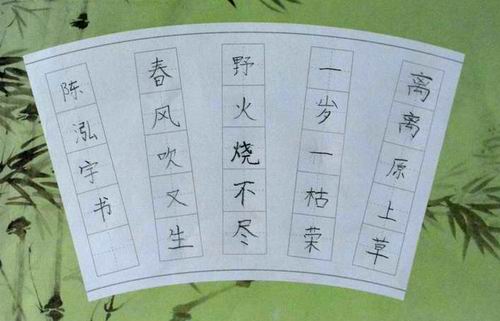 离离原上草
一岁一枯荣
野火烧不尽
春风吹又生
陈泓宇书